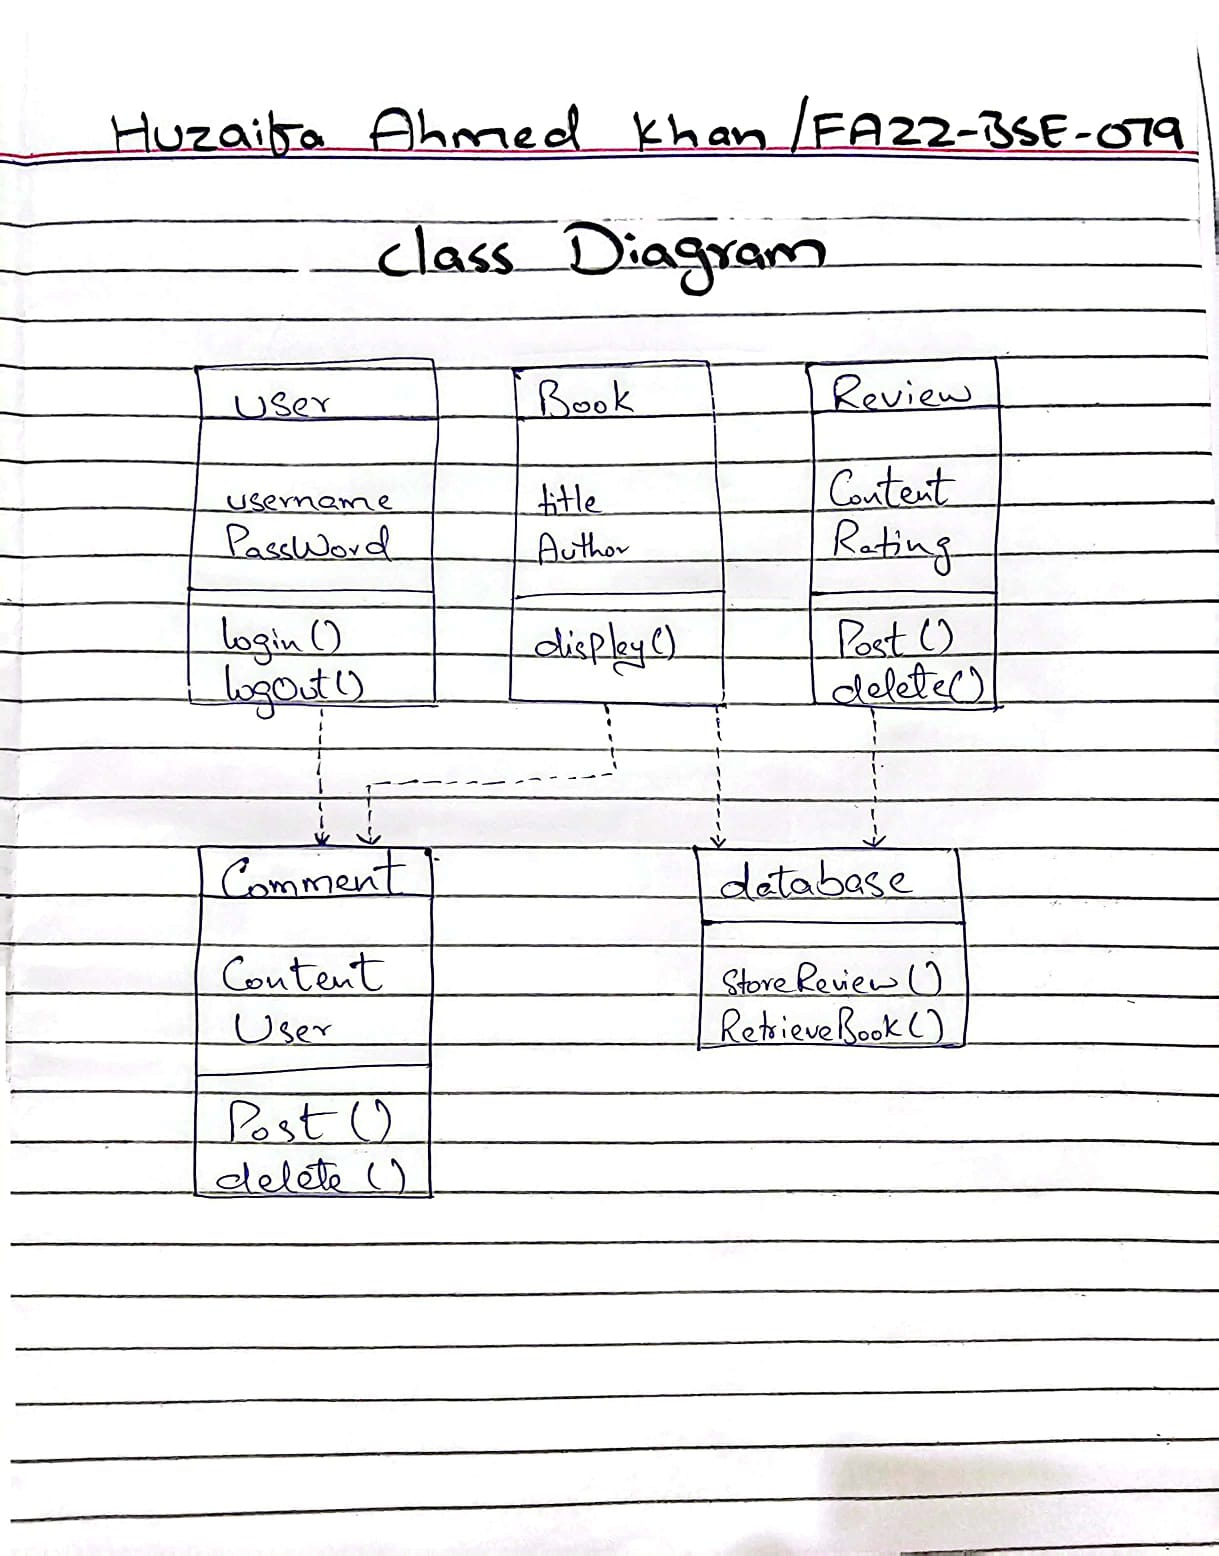 Huzaifa Ahmed Khan /FA22-BSE-079
class Diagram
User
username
PassWord
login ()
logOut ()
Book
title
Author
display ()
Review
Content
Rating
Post ()
delete ()
Comment
Content
User
Post ()
delete ()
database
StoreReview ()
RetrieveBook ()